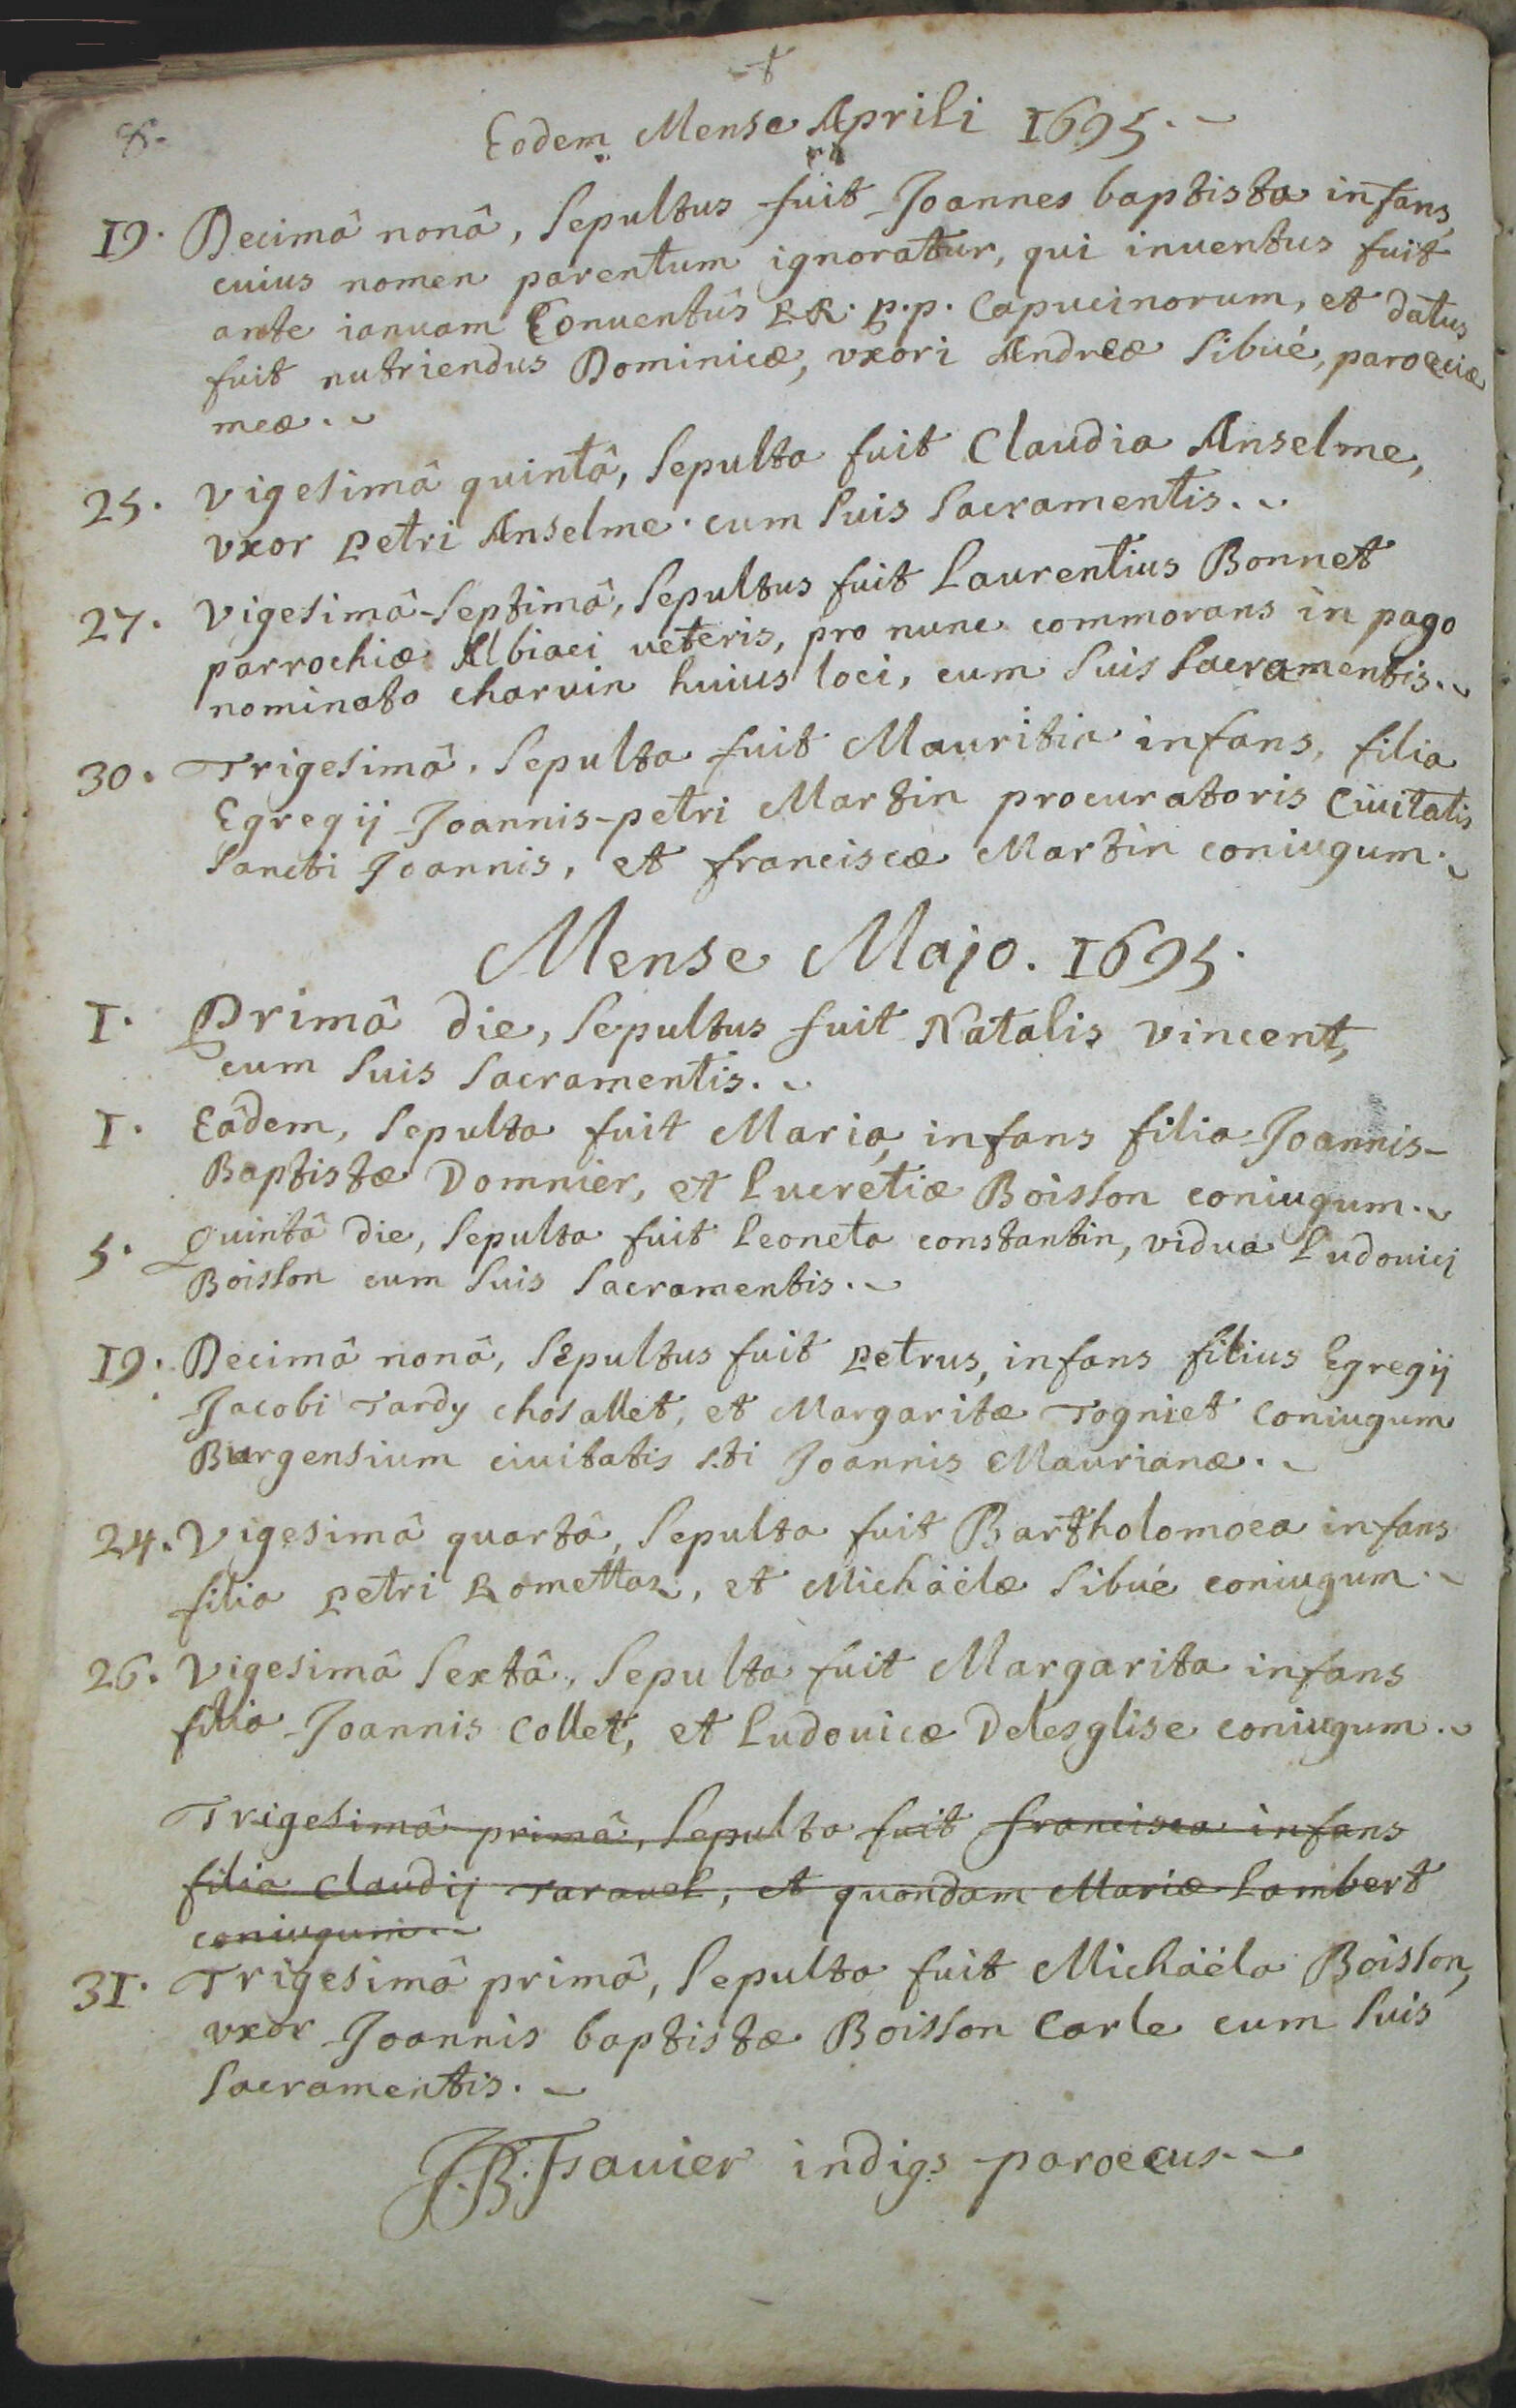 8.
Eodem Mense Aprili 1695.
19. Decimâ nonâ, Sepultus fuit Joannes baptista infans,
cuius nomen parentum ignoratur, qui inuentus fuit
ante ianuam Conuentûs RR. p.p. Capucinorum, et datus
fuit nutriendus Dominicæ, vxori Andreæ Sibué, paroeciæ
meæ.
25. Vigesimâ quintâ, Sepulta fuit Claudia Anselme,
vxor petri Anselme. cum suis sacramentis.
27. Vigesimâ-Septimâ, Sepultus fuit Laurentius Bonnet
parrochiæ Albiaci ueteris, pro nunc commorans in pago
nominato charuin huius loci, cum suis sacramentis.
30. Trigesimâ, Sepulta fuit Mauritia infans, filia
Egregij Joannis-petri Martin procuratoris Ciuitatis
Sancti Joannis, et franciscæ Martin coniugum.
Mense Majo. 1695.
1. Primâ die, Sepultus fuit Natalis vincent,
cum suis sacramentis.
1. Eâdem, Sepulta fuit Maria, infans filia Joannis-
Baptistæ Domnier, et Lucretiæ Boisson coniugum.
5. Quintâ die, Sepulta fuit Leoneta constantin, vidua Ludouici
Boisson cum suis sacramentis.
19. Decimâ nonâ, Sepultus fuit petrus, infans filius Egregij
Jacobi Tardy chosallet, et Margaritæ Togniet coniugum
Burgensium ciuitatis S.ti Joannis Maurianæ.
24. Vigesimâ quartâ, Sepulta fuit Bartholomoea infans
filia petri Romettaz, et Michäelæ Sibué coniugum.
26. Vigesimâ Sextâ, Sepulta fuit Margarita infans
filia Joannis Collet, et Ludouicæ Delesglise coniugum.
Trigesimâ primâ, Sepulta fuit francisca infans
filia Claudij Tarauel, et quondam Mariæ Lambert
coniugum.
31. Trigesimâ primâ, Sepulta fuit Michäela Boisson,
vxor Joannis baptistæ Boisson Carle cum suis
sacramentis.
indigs paroecus.